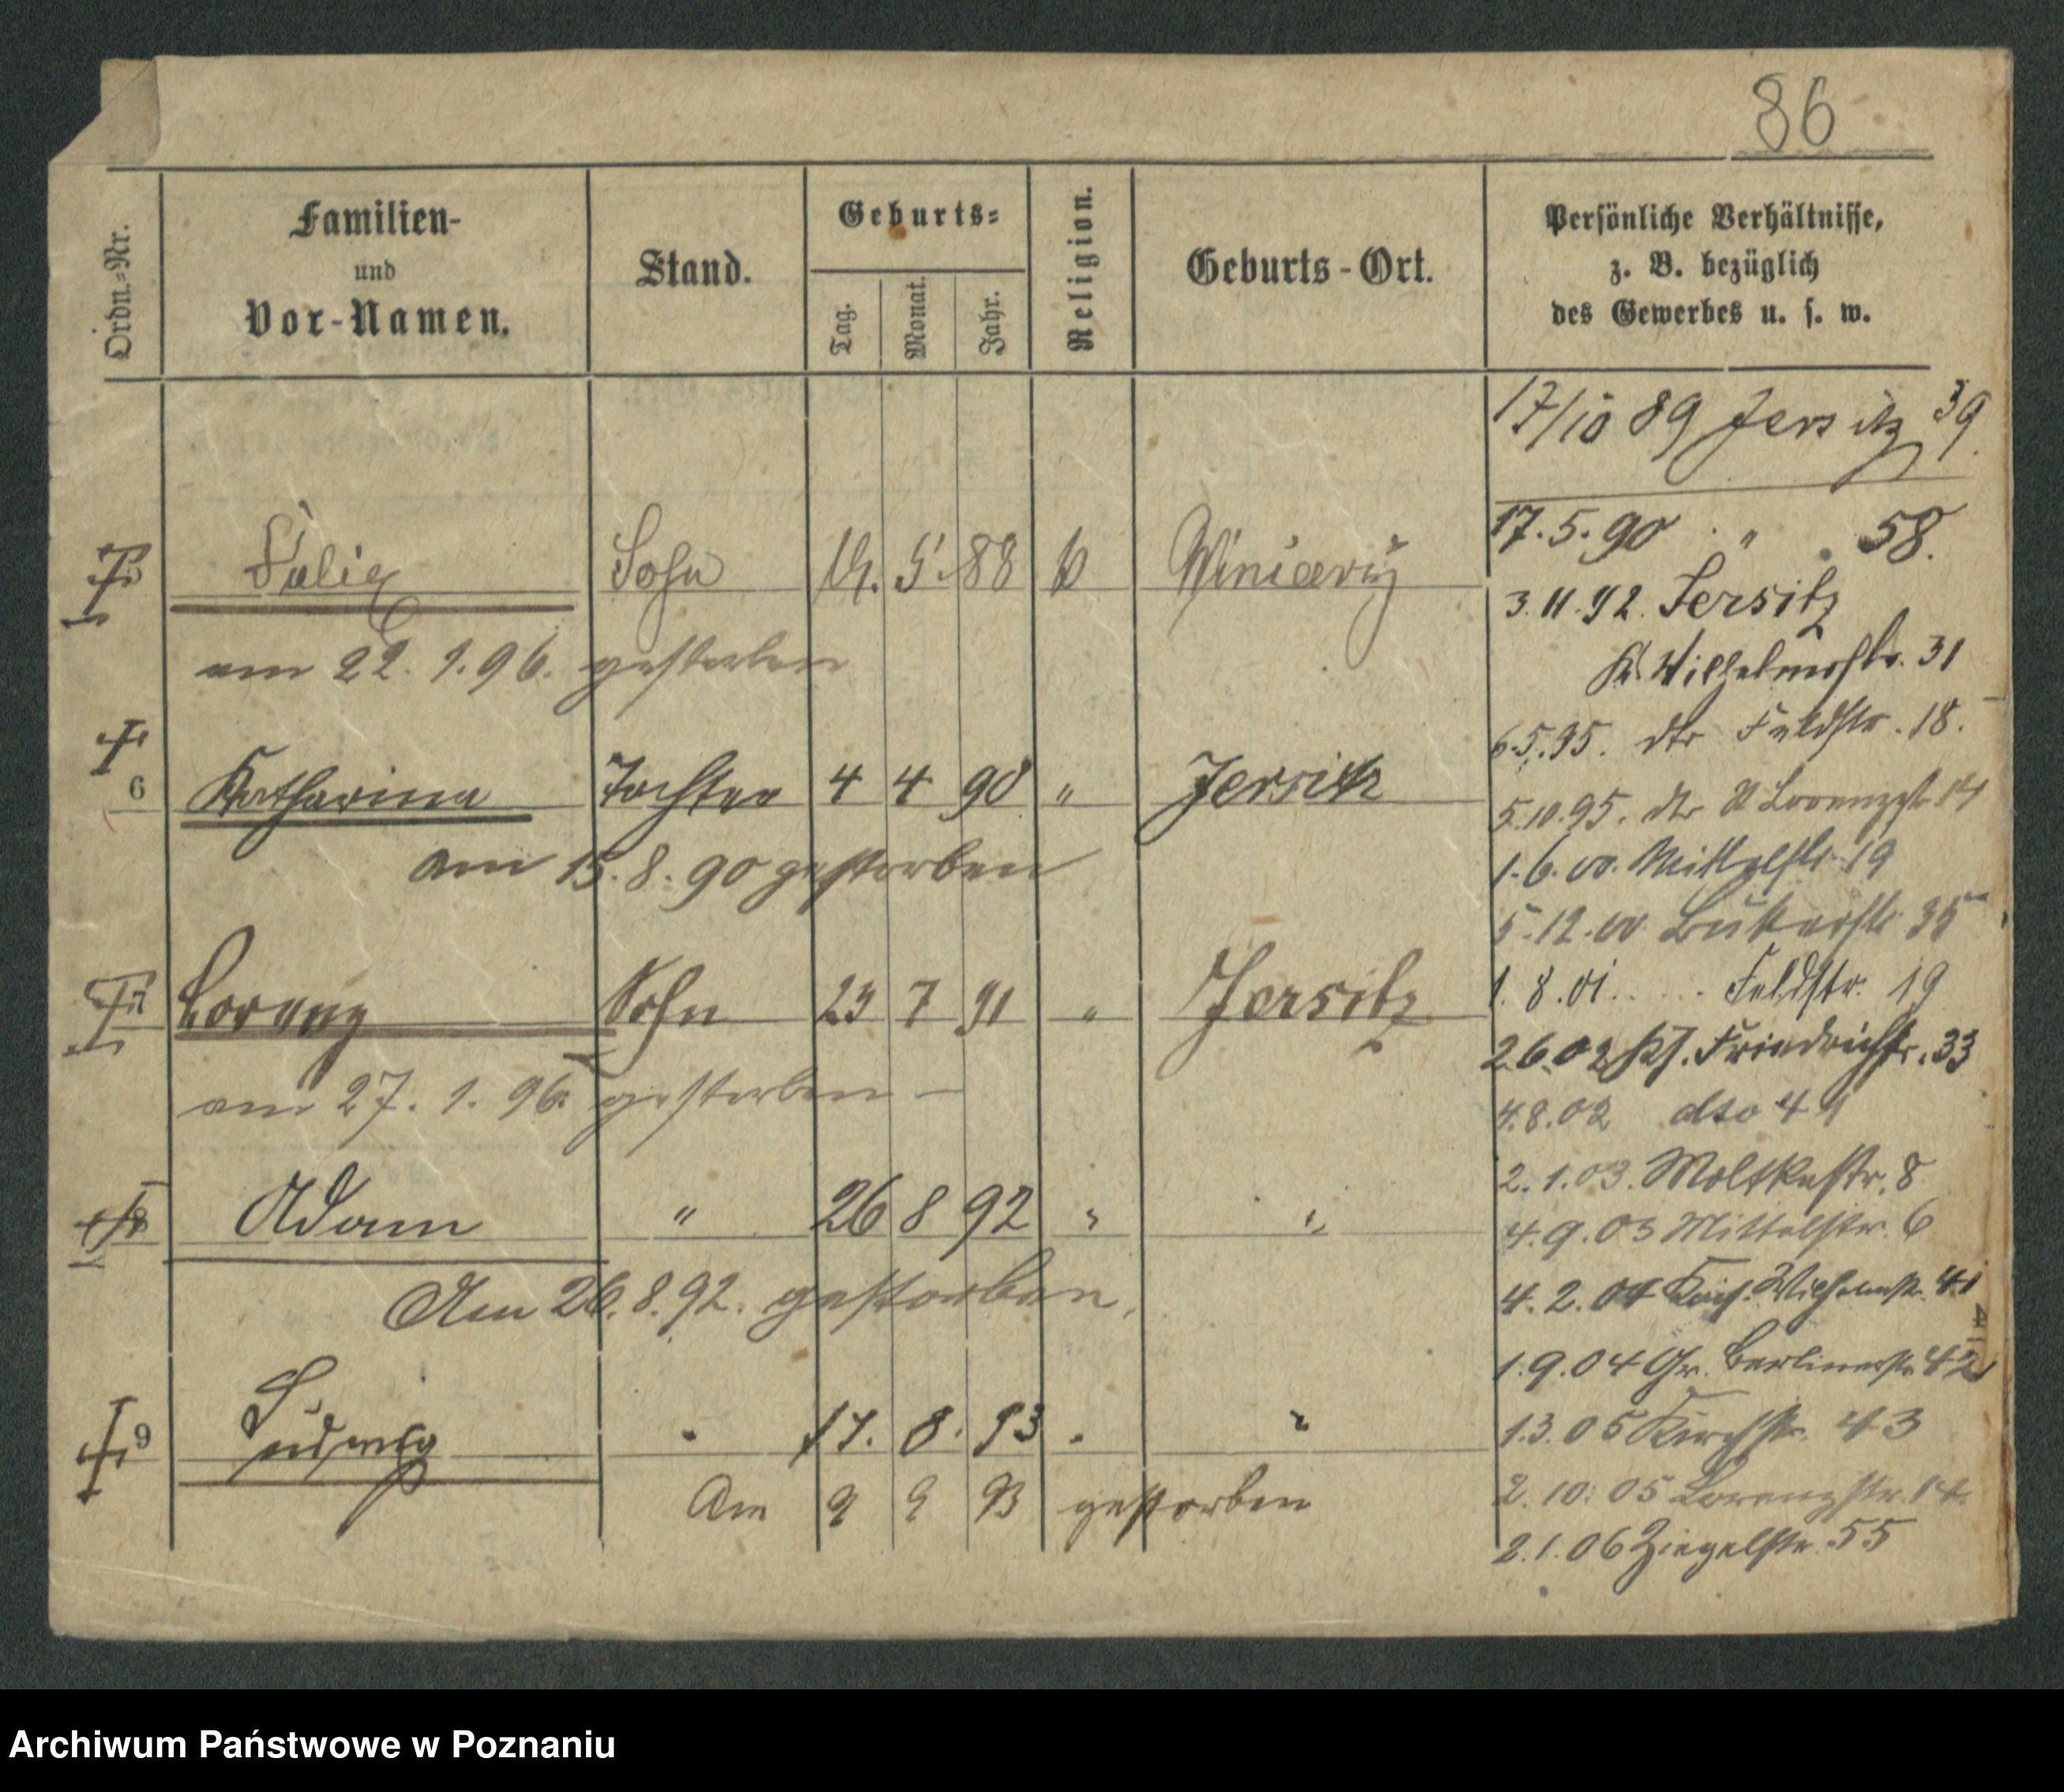 86
Ordn.-Nr.
Familien-
und
Vor-Namen.
Stand.
Geburts-
Tag.
Monat.
Jahr.
Religion.
Geburts-Ort.
Persönliche Verhältnisse,
z. B. bezüglich
des Gewerbes u. s. w.
17/10 89 Jersitz 39.
17.5.90 " 58.
5 Sohn 5 88
3.11.92. Jersitz
Wilhelmstr. 31
am 22. 1. 96. gestorben
6.5.95. dto Feldstr. 18.
6 Katharina Tochter 4 4 90 " Jersitz
5.10.95. dto Lorenzstr. 14
am 15. 8. 90 gestorben
1.6.00. Mittelstr. 19
5.12.00 35
7 Lorenz Sohn 23 7 91 " Jersitz
1.8.01. Feldstr. 19
2.6.02 Kf. Friedrichstr. 33
am 27. 1. 96. gestorben –
4.8.02 dto 41
2.1.03. Moltkestr. 8
8 Adam " 26 8 92 " "
4.9.03 Mittelstr. 6
Am 26. 8. 92. gestorben.
4.2.04 Kais. Wilhelmstr. 41
1.9.04 Gr. Berlinerstr. 42
9 Ludwig " 17. 8. 93 " "
1.3.05 Kirchstr. 43
Am 9 9 93 gestorben
2.10.05 Lorenzstr. 14.
2.1.06 Ziegelstr. 55
Archiwum Państwowe w Poznaniu